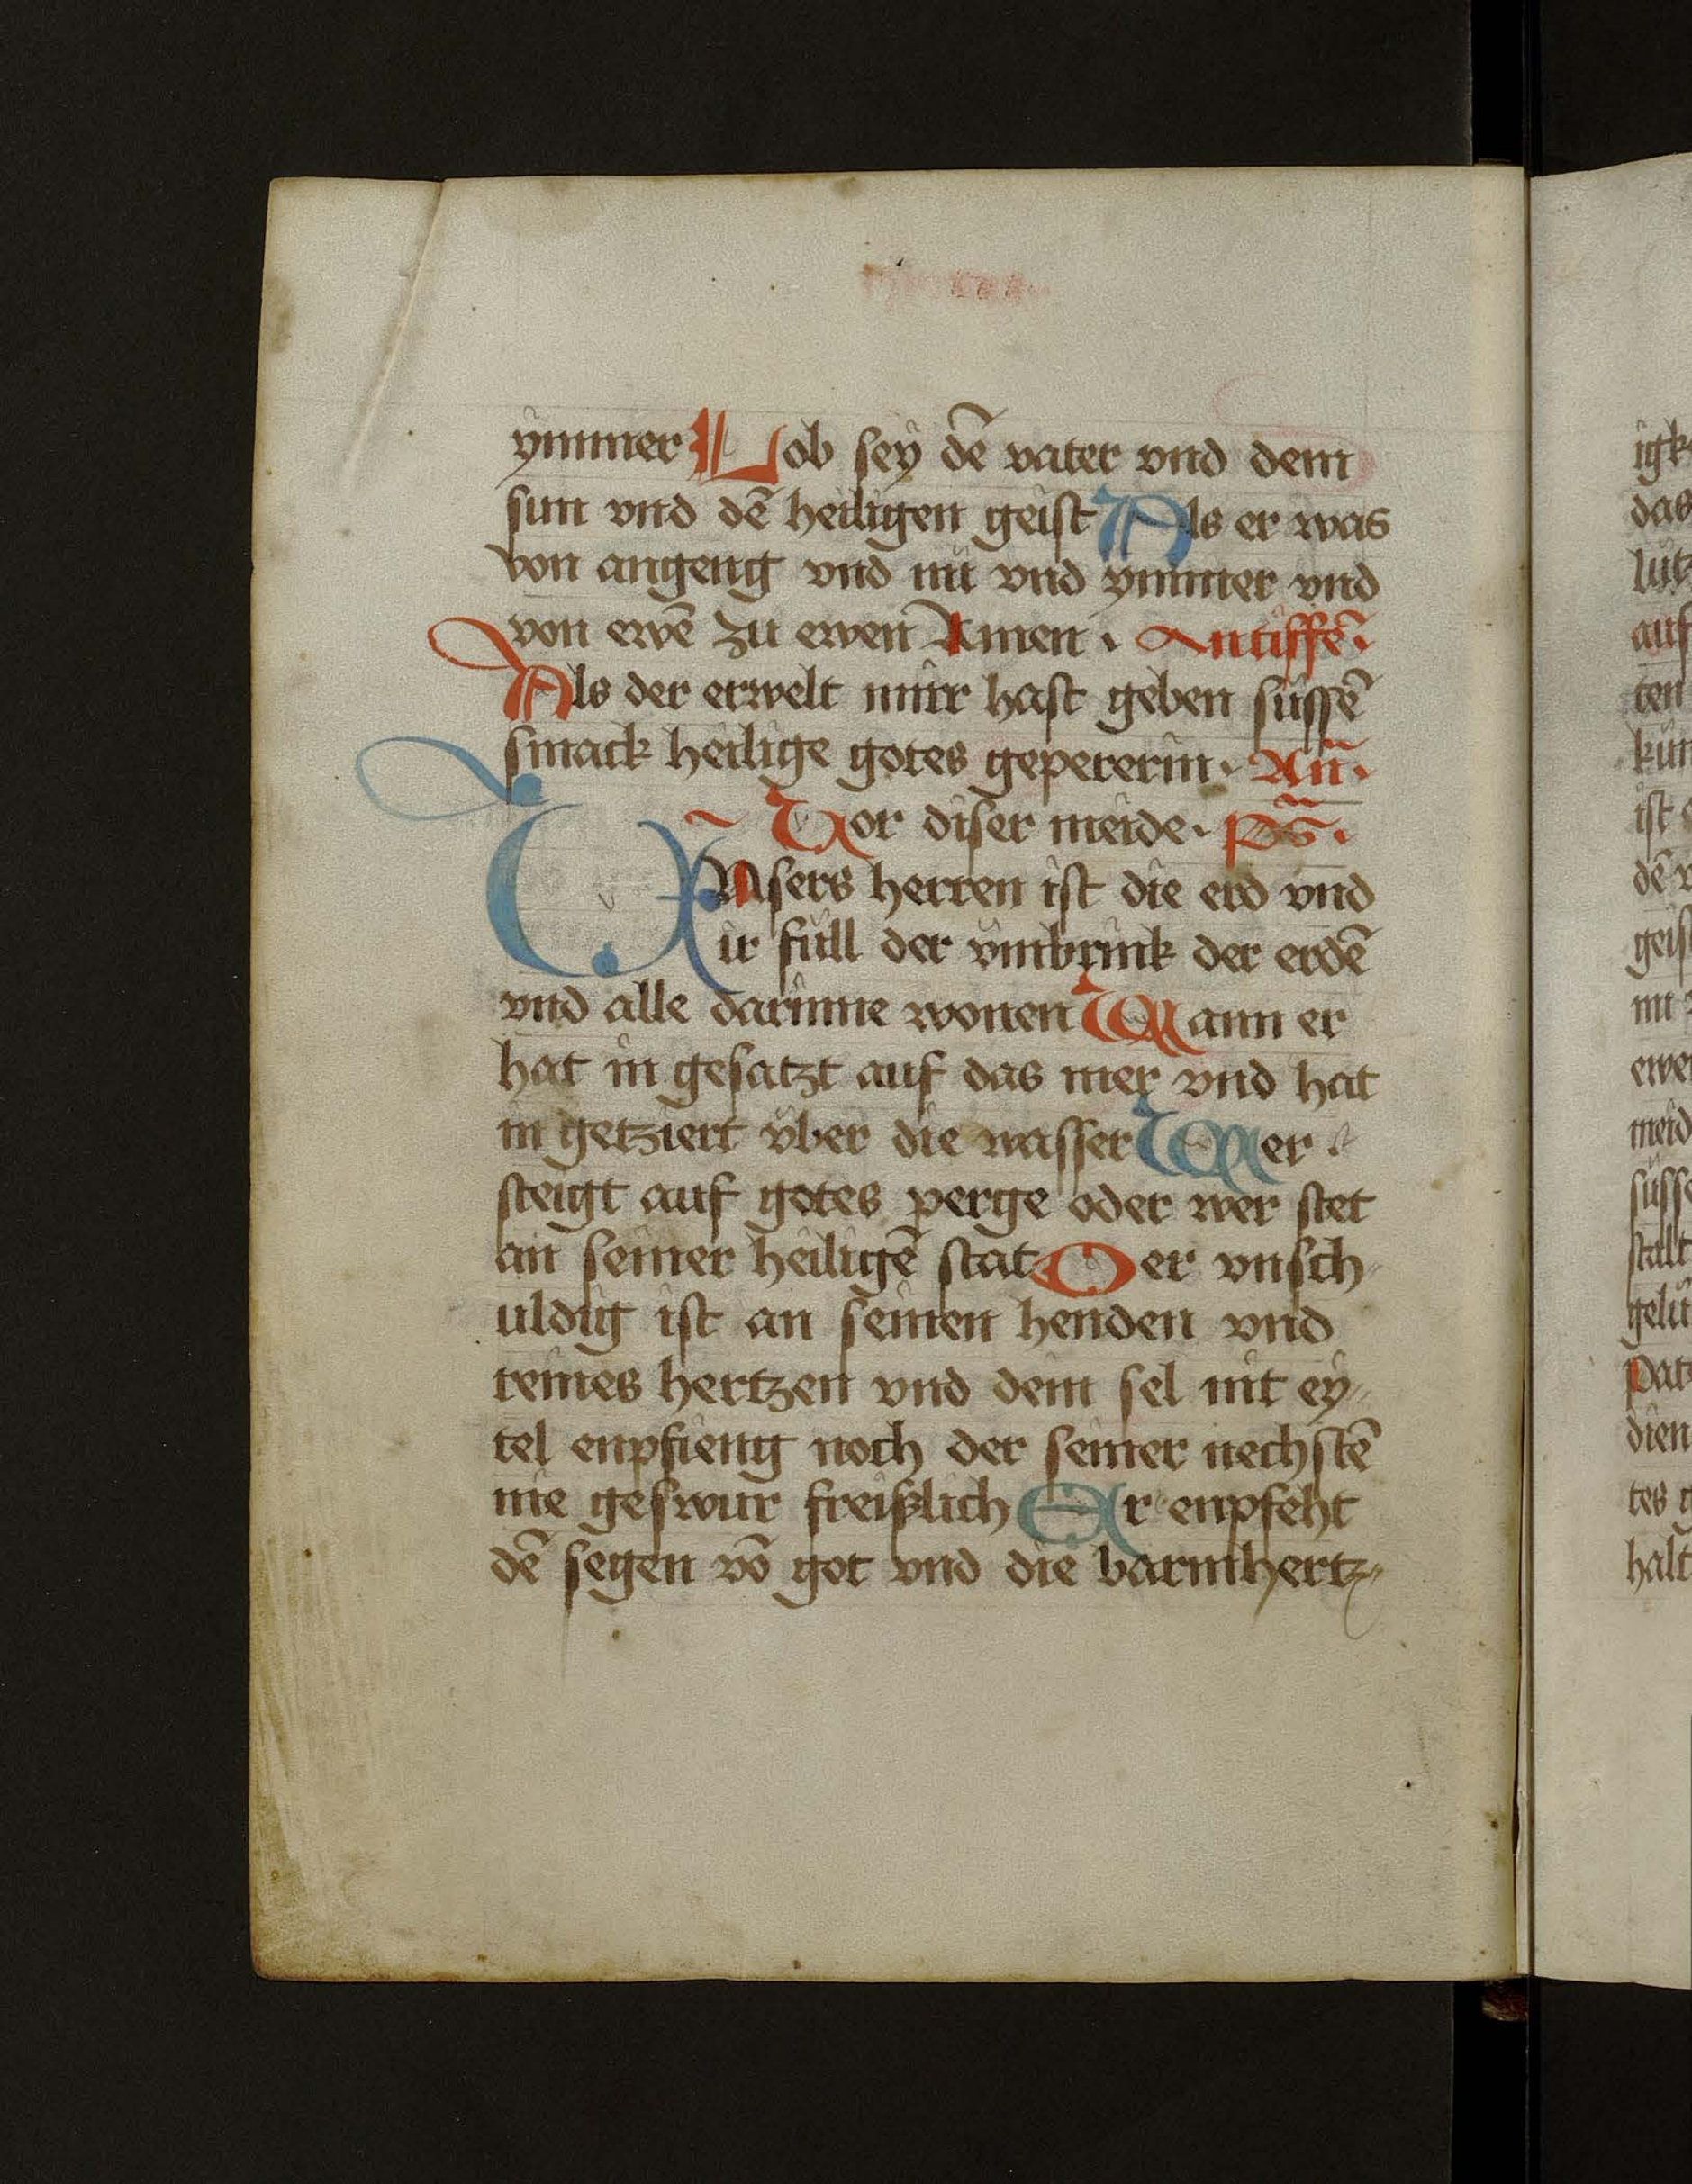 ymmer Lob sey dē vater vnd dem
sun vnd dē heiligen geist Als er was
von angeng vnd nu vnd ymmer vnd
von ewē zu ewen Amen · Antiffē ·
Als der erwelt mirr hast geben süssē
smack heilige gotes gepererin · An̄ ·
Vor diser meide · p̄s ·
VNsers herren ist die erd vnd
ir füll der vmbrink der erdē
vnd alle darinne wonen Wann er
hat in gesatzt auf das mer vnd hat
in getziert vber die wasser Wer
steigt auf gotes perge oder wer stet
an seiner heiligē stat Der vnsch
uldig ist an seinen henden vnd
reines hertzen vnd dein sel nit ey
tel enpfieng noch der seiner nechstē
nie geswur freißlich Er enpfeht
dē segen vō got vnd die barmhertz
igk
das
lütz
auf
ten
kün
ist
dē v
geis
nu z
ewen
meid
süsse
stalt
gelu
Pat
dien
tes g
halt